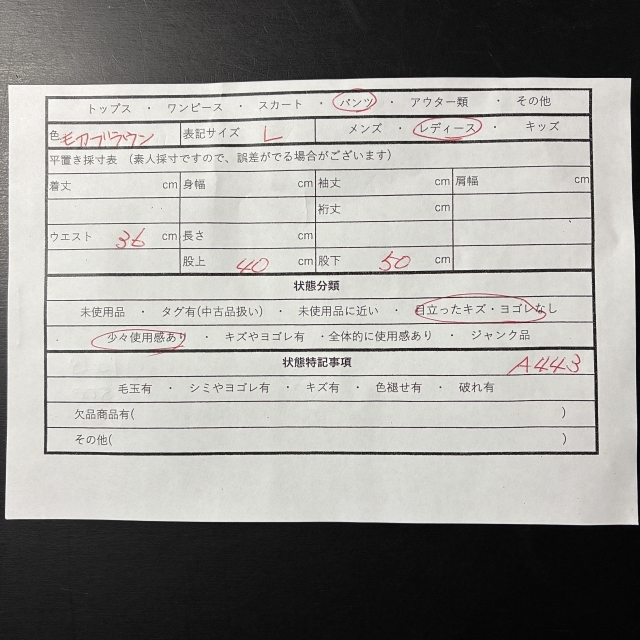 トップス ・ ワンピース ・ スカート ・ パンツ ・ アウター類 ・ その他
色 モカブラウン 表記サイズ L メンズ ・ レディース ・ キッズ
平置き採寸表 (素人採寸ですので、誤差がでる場合がございます)
着丈 cm 身幅 cm 袖丈 cm 肩幅 cm
裄丈 cm
ウエスト 36 cm 長さ cm
股上 40 cm 股下 50 cm
状態分類
未使用品 ・ タグ有(中古品扱い) ・ 未使用品に近い ・ 目立ったキズ・ヨゴレなし
・ 少々使用感あり ・ キズやヨゴレ有 ・全体的に使用感あり ・ ジャンク品
状態特記事項 A443
毛玉有 ・ シミやヨゴレ有 ・ キズ有 ・ 色褪せ有 ・ 破れ有
欠品商品有( )
その他( )